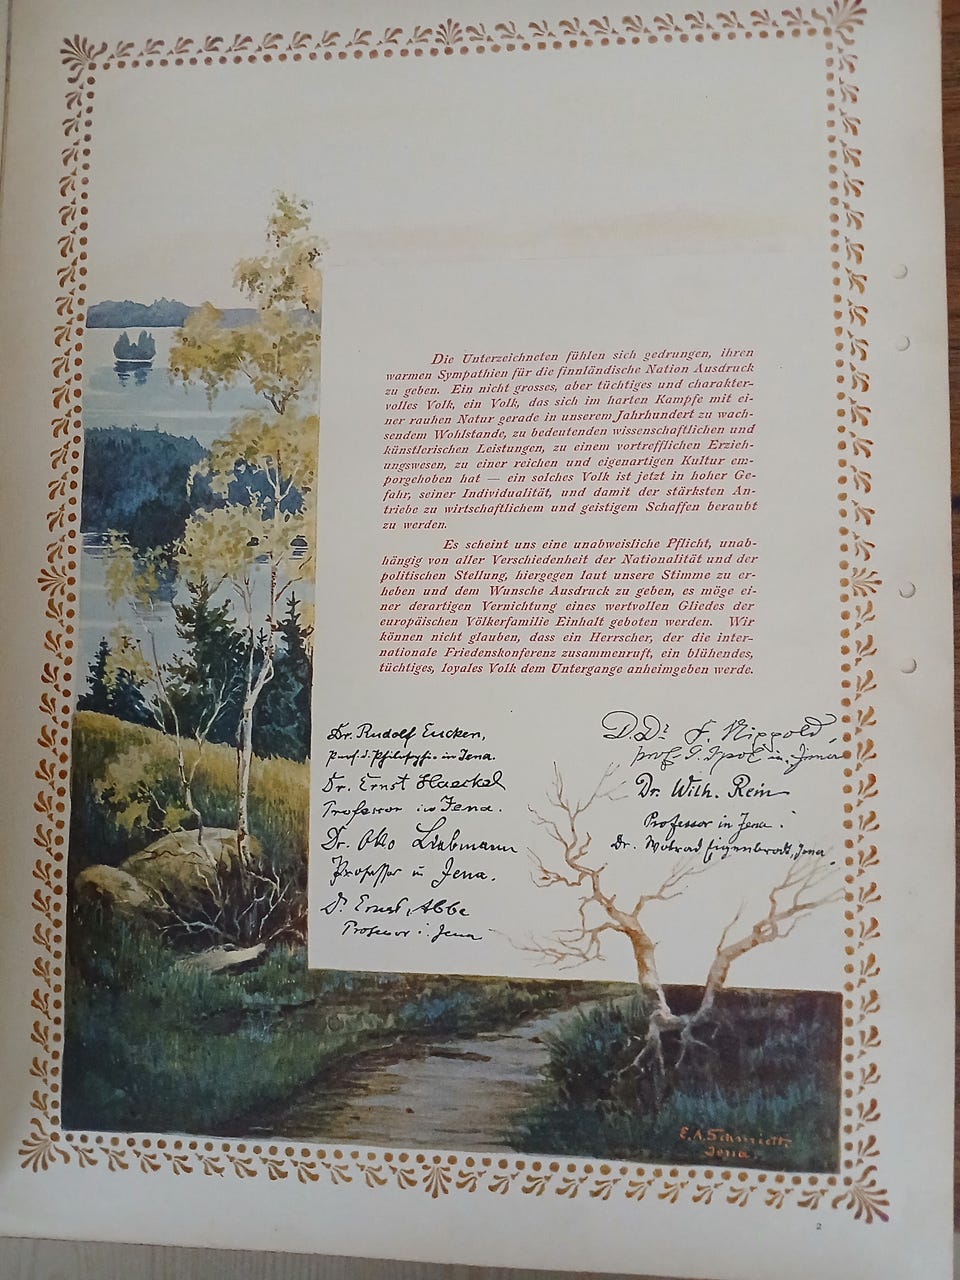 Die Unterzeichneten fühlen sich gedrungen, ihren
warmen Sympathien für die finnländische Nation Ausdruck
zu geben. Ein nicht grosses, aber tüchtiges und charakter-
volles Volk, ein Volk, das sich im harten Kampfe mit ei-
ner rauhen Natur gerade in unserem Jahrhundert zu wach-
sendem Wohlstande, zu bedeutenden wissenschaftlichen und
künstlerischen Leistungen, zu einem vortrefflichen Erzieh-
ungswesen, zu einer reichen und eigenartigen Kultur em-
porgehoben hat — ein solches Volk ist jetzt in hoher Ge-
fahr, seiner Individualität, und damit der stärksten An-
triebe zu wirtschaftlichem und geistigem Schaffen beraubt
zu werden.
Es scheint uns eine unabweisliche Pflicht, unab-
hängig von aller Verschiedenheit der Nationalität und der
politischen Stellung, hiergegen laut unsere Stimme zu er-
heben und dem Wunsche Ausdruck zu geben, es möge ei-
ner derartigen Vernichtung eines wertvollen Gliedes der
europäischen Völkerfamilie Einhalt geboten werden. Wir
können nicht glauben, dass ein Herrscher, der die inter-
nationale Friedenskonferenz zusammenruft, ein blühendes,
tüchtiges, loyales Volk dem Untergange anheimgeben werde.
Dr. Rudolf Eucken,
Prof. d. Philosophie in Jena.
Dr. Ernst Haeckel
Professor in Jena.
Dr. Otto Liebmann
Professor in Jena.
Dr. Ernst Abbe
Professor i. Jena
D. Dr. F. Nippold,
prof. in Jena
Dr. Wilh. Rein
Professor in Jena.
Dr. Wolrad Eigenbrodt, Jena
E. A. Schmidt.
Jena
2